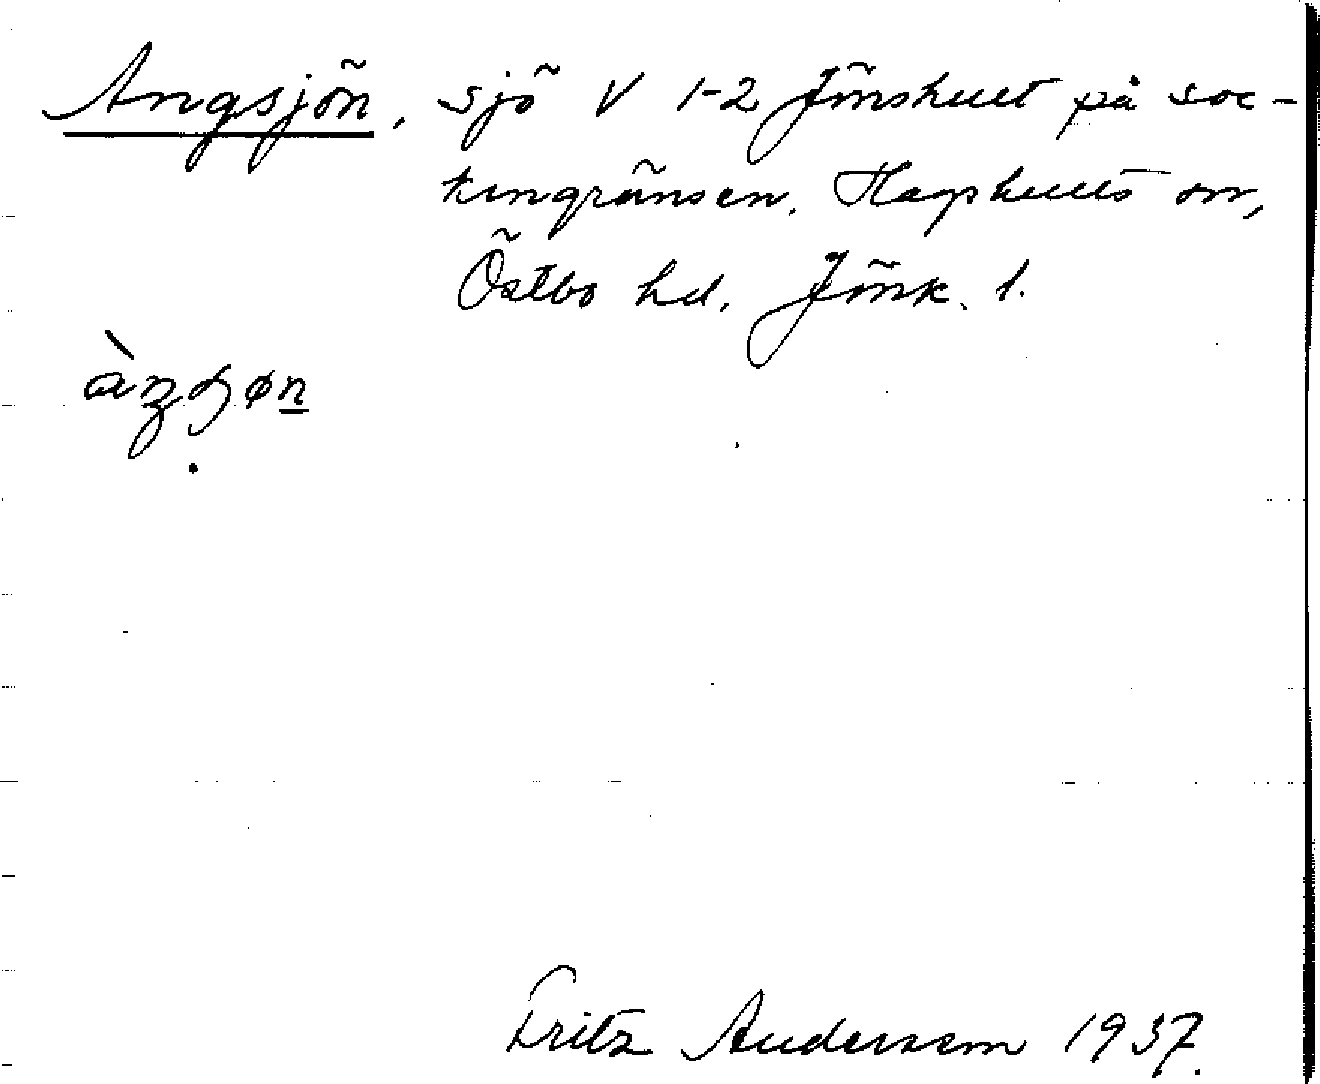 Angsjön, sjö V 1-2 Jönshult på soc-
kengränsen. Hagshults sn,
Östbo hd. Jönk. l.
Fritz Andersson 1937.